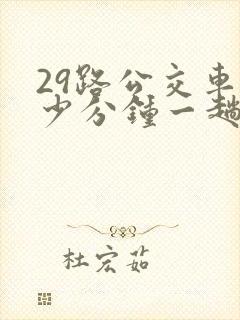 29路公交车
少分钟一趟
杜宏茹